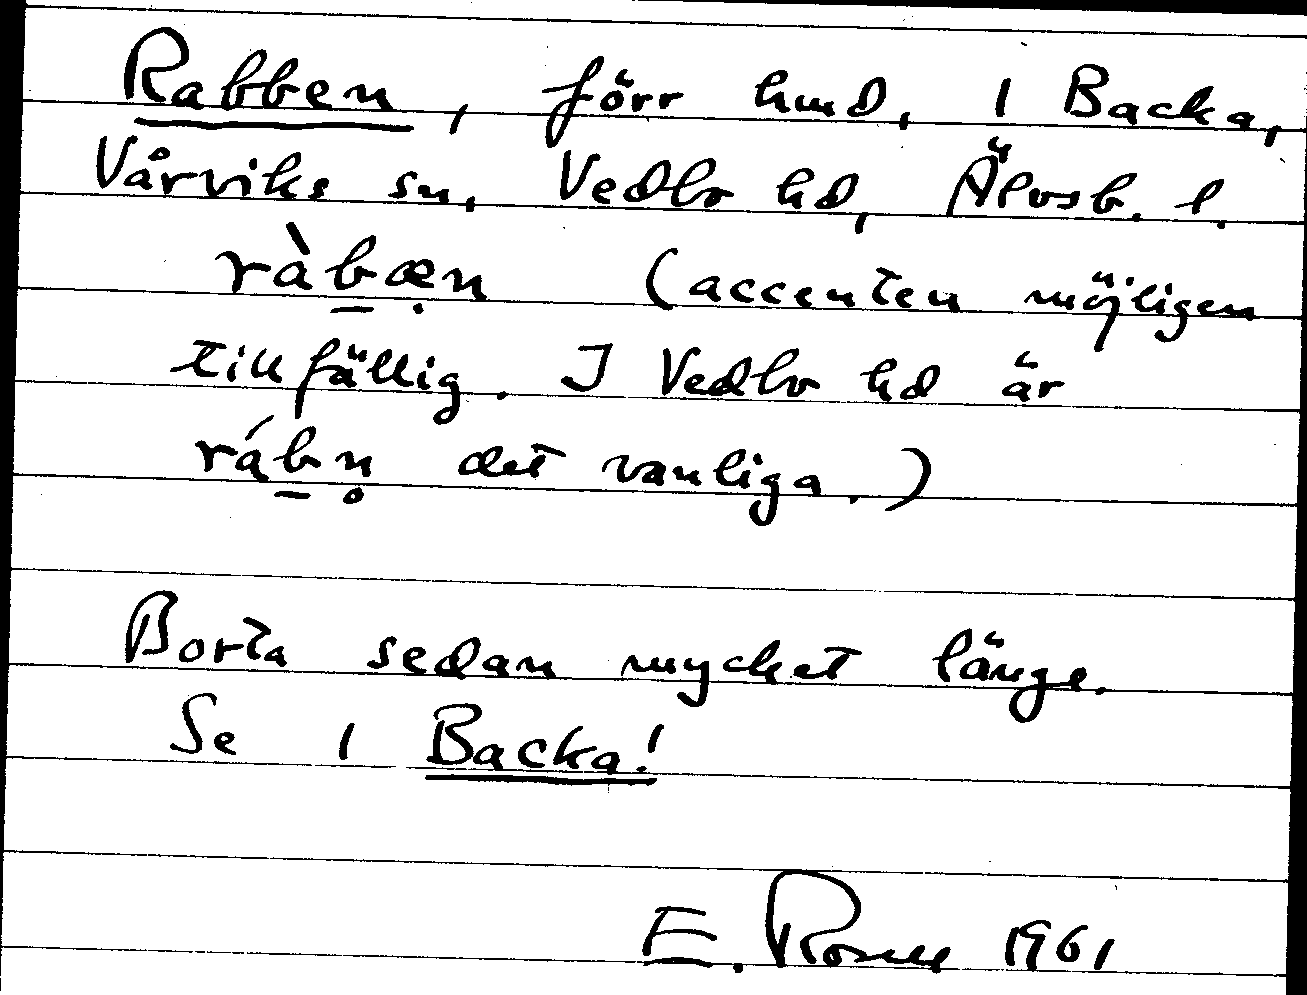 Rabben, förr hmd, 1 Backa,
Vårviks sn, Vedbo hd, Älvsb. l.
ràb̲æṇ (accenten möjligen
tillfällig. I Vedbo hd är
ráb̲n̥ det vanliga.)
Borta sedan mycket länge.
Se 1 Backa!
E. Rosell 1961